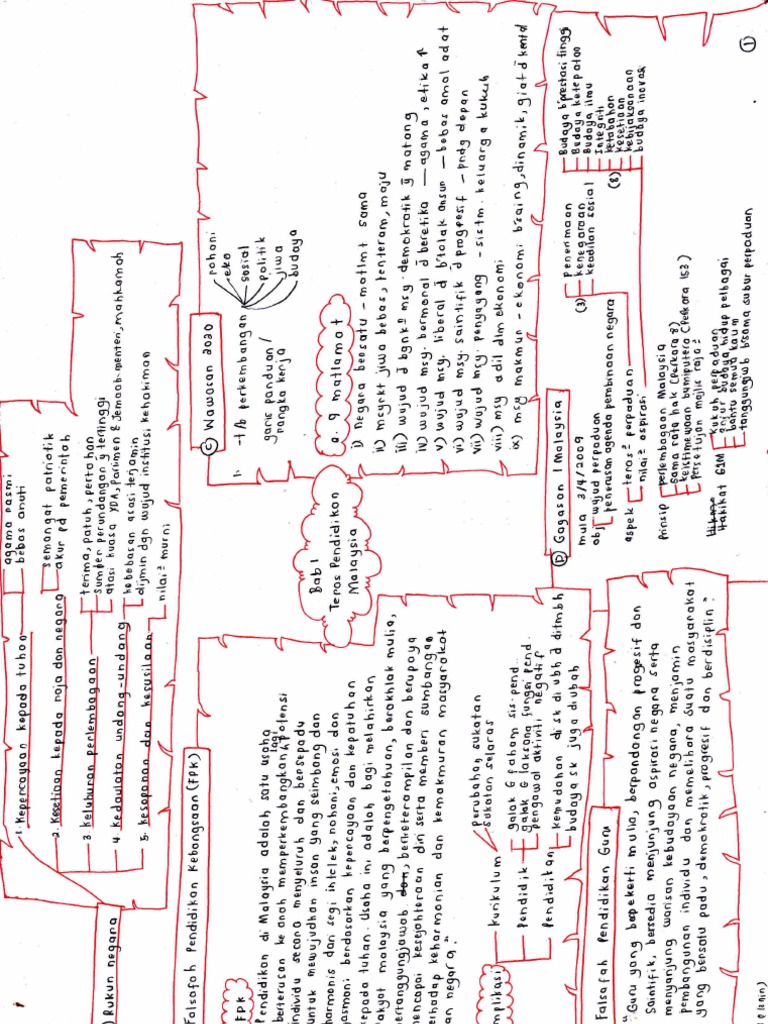 Bab 1
Teras Pendidikan
Malaysia
) Rukun negara
1. Kepercayaan kepada tuhan
agama rasmi
bebas anuti
2. Kesetiaan kepada raja dan negara
semangat patriotik
akur pd pemerintah
3. Keluhuran perlembagaan
terima, patuh, pertahan
sumber perundangan ȳ tertinggi
atasi kuasa YDA, Parlimen & Jemaah menteri, mahkamah
4. Kedaulatan undang-undang
kebebasan asasi terjamin
dijmin dgn wujud institusi kehakiman
5. Kesopanan dan kesusilaan
nilai² murni
Falsafah Pendidikan Kebangsaan (FPK)
FPK
Pendidikan di Malaysia adalah satu usaha
berterusan ke arah memperkembangkan lagi potensi
individu secara menyeluruh dan bersepadu
untuk mewujudkan insan yang seimbang dan
harmonis dari segi intelek, rohani, emosi dan
jasmani berdasarkan kepercayaan dan kepatuhan
kepada tuhan. Usaha ini adalah bagi melahirkan
rakyat malaysia yang berpengetahuan, berakhlak mulia,
bertanggungjawab dan, berketerampilan dan berupaya
mencapai kesejahteraan diri serta memberi sumbangan
terhadap keharmonian dan kemakmuran masyarakat
dan negara."
mplikasi
kurikulum
perubahan sukatan
sukatan selaras
Pendidik
galak & faham sis. pend.
galak & laksana fungsi pend.
pengawal aktiviti negatif
Pendidikan
kemudahan di sk di ubh d̄ ditmbh
budaya sk juga diubah
Falsafah Pendidikan Guru
"Guru yang berpekerti mulia, berpandangan progresif dan
Saintifik, bersedia menjunjung aspirasi negara serta
menyanjung warisan kebudayaan negara, menjamin
pembangunan individu dan memelihara suatu masyarakat
yang bersatu padu, demokratik, progresif dan berdisiplin".
C Wawasan 2020
1. - t/b perkembangan
rohani
eko
sosial
politik
jiwa
budaya
garis panduan /
rangka kerja
a. 9 matlamat
i) negara bersatu - matlmt sama
ii) msyrkt jiwa bebas, tenteram, maju
iii) wujud d̄ bgnkⁿ msy. demokratik ȳ matang
iv) wujud msy. bermoral d̄ beretika — agama, etika ↑
v) wujud msy. liberal d̄ b'tolak ansur — bebas amal adat
vi) wujud msy. saintifik d̄ progresif — pndg depan
vii) wujud msy. penyayang - sistm. keluarga kukuh
viii) msy adil dlm ekonomi
ix) msy makmur - ekonomi b'saing, dinamik, giat d̄ kental
D Gagasan 1 Malaysia
mula 3/4/2009
obj
wujud perpaduan
penerusan agenda pembinaan negara
aspek
teras² perpaduan
(3)
penerimaan
kenegaraan
keadilan sosial
nilai² aspirasi
(8)
Budaya b'prestasi tinggi
Budaya ketepatan
Budaya ilmu
Integriti
ketabahan
kesetiaan
kebijaksanaan
budaya inovasi
Prinsip
perlembagaan Malaysia
sama rata hak (Perkara 8)
keistimewaan bumiputera (Perkara 153)
persetujuan majlis raja²
Hakikat G1M
Kukuh perpaduan
anjur budaya hidup pelbagai
bantu semua kaum
tanggungjwb b'sama subur perpaduan
1